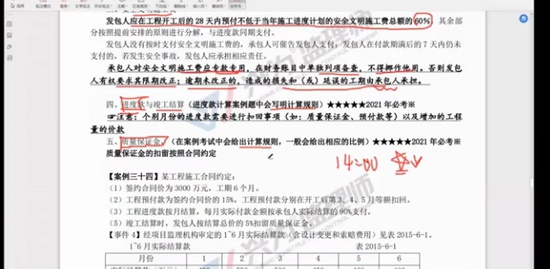 发包人应在工程开工后的 28 天内预付不低于当年施工进度计划的安全文明施工费总额的 60%, 其余部
分按照提前安排的原则进行分解, 与进度款同期支付。
发包人没有按时支付安全文明施工费的, 承包人可催告发包人支付; 发包人在付款期满后的 7 天内仍未支
付的, 若发生安全事故, 发包人应承担相应责任。
承包人对安全文明施工费应专款专用, 在财务账目中单独列项备查, 不得挪作他用, 否则发包
人有权要求其限期改正; 逾期未改正的, 造成的损失和 (或) 延误的工期由承包人承担。
四、进度款与竣工结算 (进度款计算案例题中会写明计算规则) ★★★★★2021 年必考※
☞注意: 个别月份的进度款需要进行扣回事项 (如: 质量保证金、预付款等) 以及增加的工程
量的价款
五、质量保证金 (在案例考试中会给出计算规则, 一般会给出相应的比例) ★★★★★2021 年必考※
质量保证金的扣留按照合同约定
【案例三十四】某工程施工合同约定:
(1) 签约合同价为 3000 万元, 工期 6 个月。
(2) 工程预付款为签约合同价的 15%, 工程预付款分别在开工后第 3、4、5 月等额扣回。
(3) 工程进度款按月结算, 每月实际付款金额按承包人实际结算款的 90%支付。
(5) 竣工结算时, 发包人按结算总价的 5%扣留质量保证金。
【事件 4】经项目监理机构审定的 1~6 月实际结算款 (含设计变更和索赔费用) 见表 2015-6-1。
1~6 月实际结算款 表 2015-6-1.
月份 1 2 3 4 5 6